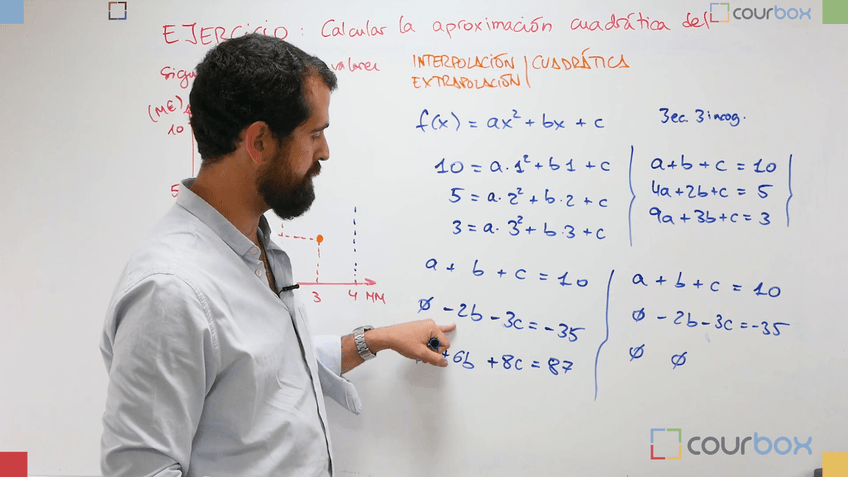 EJERCICIO: Calcular la aproximación cuadrática del
valores
(M€)
10
5
3 4 MM
INTERPOLACIÓN / CUADRÁTICA
EXTRAPOLACIÓN
f(x) = ax² + bx + c
3ec. 3incog.
10 = a·1² + b1 + c
5 = a·2² + b·2 + c
3 = a·3² + b·3 + c
a + b + c = 10
4a + 2b + c = 5
9a + 3b + c = 3
a + b + c = 10
Ø - 2b - 3c = -35
+6b + 8c = 87
a + b + c = 10
Ø - 2b - 3c = -35
Ø Ø
courbox
courbox